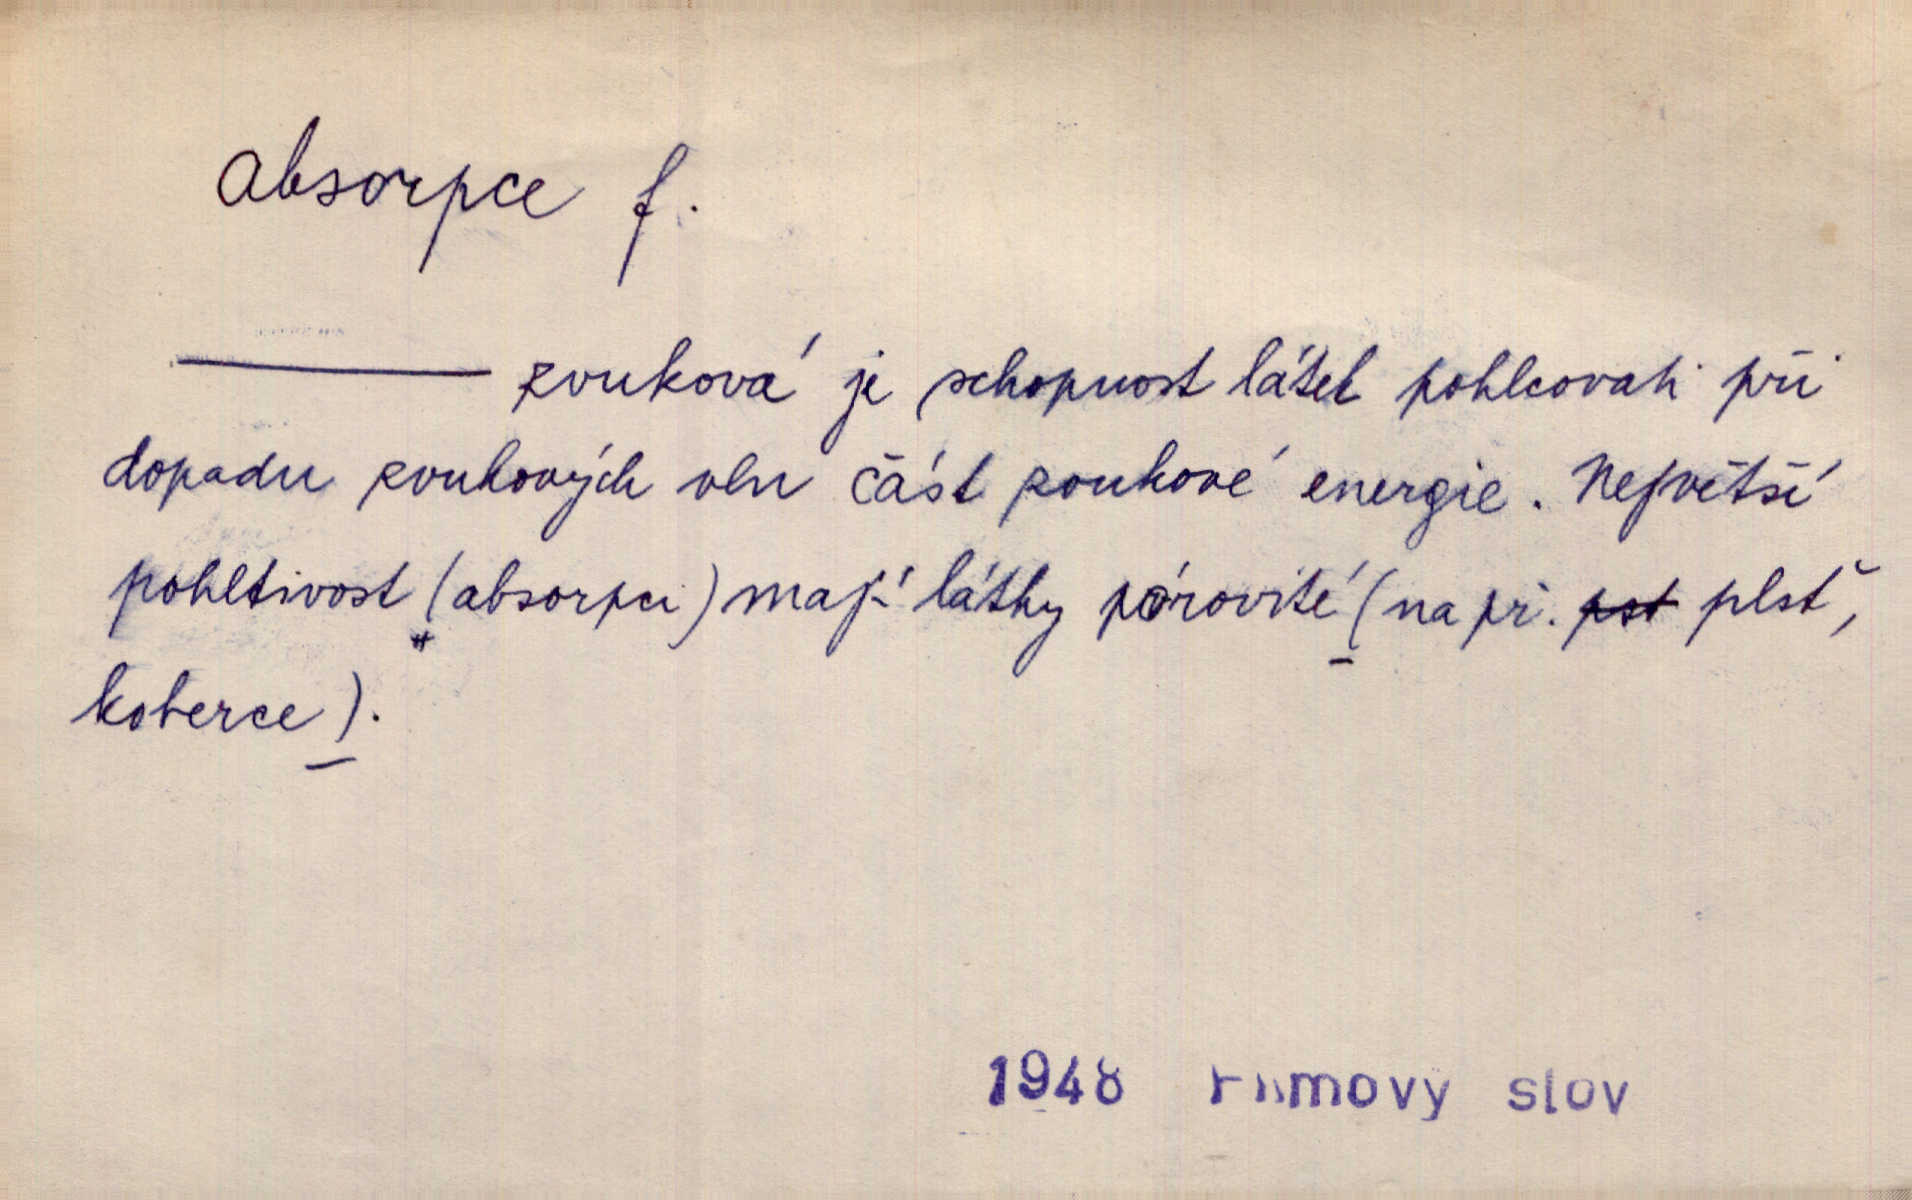 absorpce f.
——— zvuková je schopnost látek pohlcovati při
dopadu zvukových vln část zvukové energie. Největší
pohltivost (absorpci) mají látky pórovité (např. pst plsť,
koberce).
1948 Filmovy slov